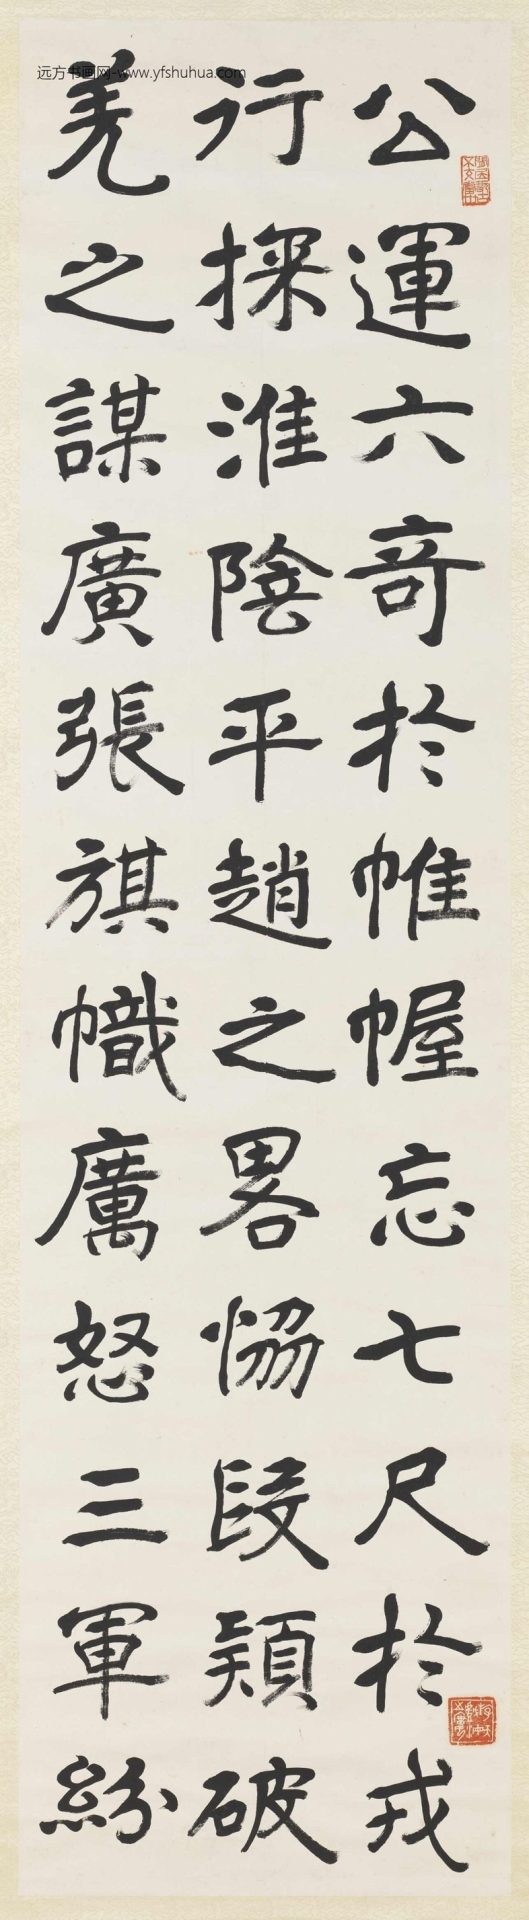 远方书画网-www.yfshuhua.com
公運六竒於帷幄忘七尺於戎
行探淮陰平趙之畧恊段熲破
羌之謀廣張旗幟厲怒三軍紛